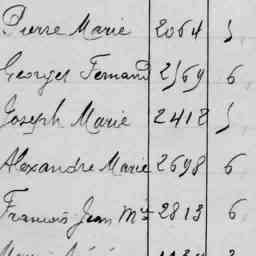 Pierre Marie 2064 5
Georges Fernand 2569 6
Joseph Marie 2412 5
Alexandre Marie 2698 6
Francois Jean Mie 2813 6